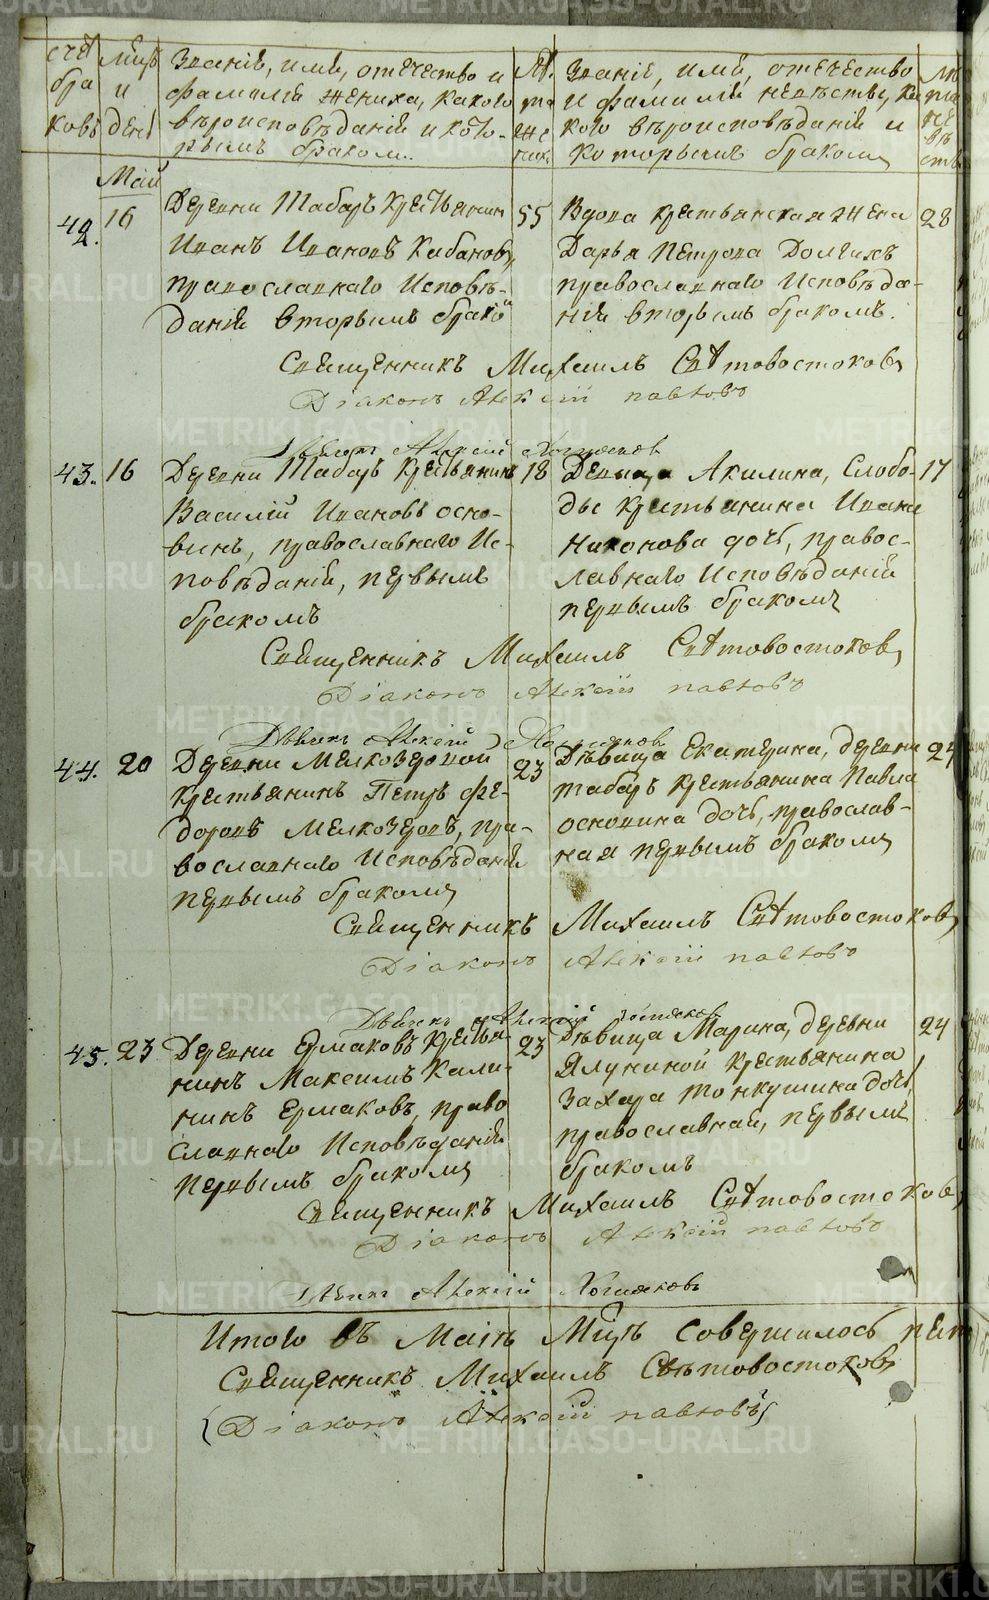 счетъ браковъ
мцъ и день
Званіе, имя, отечество и
фамилія жениха, какого
вѣроисповѣданія и кото-
рымъ бракомъ.
Лѣта жених.
Званіе, имя, отечество
и фамилія невѣсты, ка
кого вѣроисповѣданія и
которымъ бракомъ
Лѣта невѣсты
Май
42. 16
Деревни Табаръ крестьянинъ
Иванъ Ивановъ Кабановъ,
православнаго Исповѣ-
данія вторымъ бракомъ
55
Вдова крестьянская жена
Дарья Петрова Долгихъ
православнаго Исповѣда-
нія вторымъ бракомъ.
28
Священникъ Михаилъ Свѣтовостоковъ
Діаконъ Алексій Павловъ
Алексій
43. 16
Деревни Табаръ крестьянинъ
Василій Ивановъ осно-
винъ, православнаго Ис-
повѣданія, первымъ
бракомъ
18
Девица Акилина, Слобо-
ды крестьянина Ивана
Никонова дочь, правос-
лавнаго Исповѣданія
первымъ бракомъ
17
Священникъ Михаилъ Свѣтовостоковъ
Діаконъ Алексій Павловъ
Алексій
44. 20
Деревни Мелкозеровой
крестьянинъ Петръ Фе-
доровъ Мелкозеровъ, пра-
вославнаго Исповѣданія
первымъ бракомъ
23
Дѣвица Екатерина, деревни
табаръ крестьянина Павла
основина дочь, православ-
ная первымъ бракомъ
Священникъ Михаилъ Свѣтовостоковъ
Діаконъ Алексій Павловъ
Алексій
45. 23
Деревни Ермаковъ крестья-
нинъ Максимъ Кали-
нинъ Ермаковъ, право
славнаго Исповѣданія
первымъ бракомъ
23
Дѣвица Марина, деревни
Ялуниной крестьянина
Захара Тонкушина дочь,
православная, первымъ
бракомъ
24
Священникъ Михаилъ Свѣтовостоковъ
Діаконъ Алексій Павловъ
Алексій
Итого въ Маѣ Мцѣ совершилось
Священникъ Михаилъ Свѣтовостоковъ
Діаконъ Алексій Павловъ
METRIKI.GASO-URAL.RU